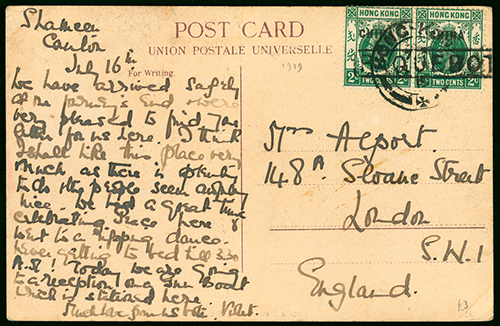 Shameen
Canton
July 16th
POST CARD
UNION POSTALE UNIVERSELLE
For Writing.
1919
We have arrived safely
at our journey's End & were
very pleased to find your
letter for us here. I think
I shall like this place very
much as there is plenty
to do & the people seem awfully
nice. We had a great time
celebrating Peace here &
went to a ripping dance.
Never getting to bed till 3.30
A.M! Today we are going
to a reception on a Gun Boat
which is stationed here.
Much love from us both. Violet.
HONG KONG
HONG KONG
CHINA
CHINA
2c TWO CENTS 2c
2c TWO CENTS 2c
Mrs Alport.
148A Sloane Street
London
S.W.1
England.